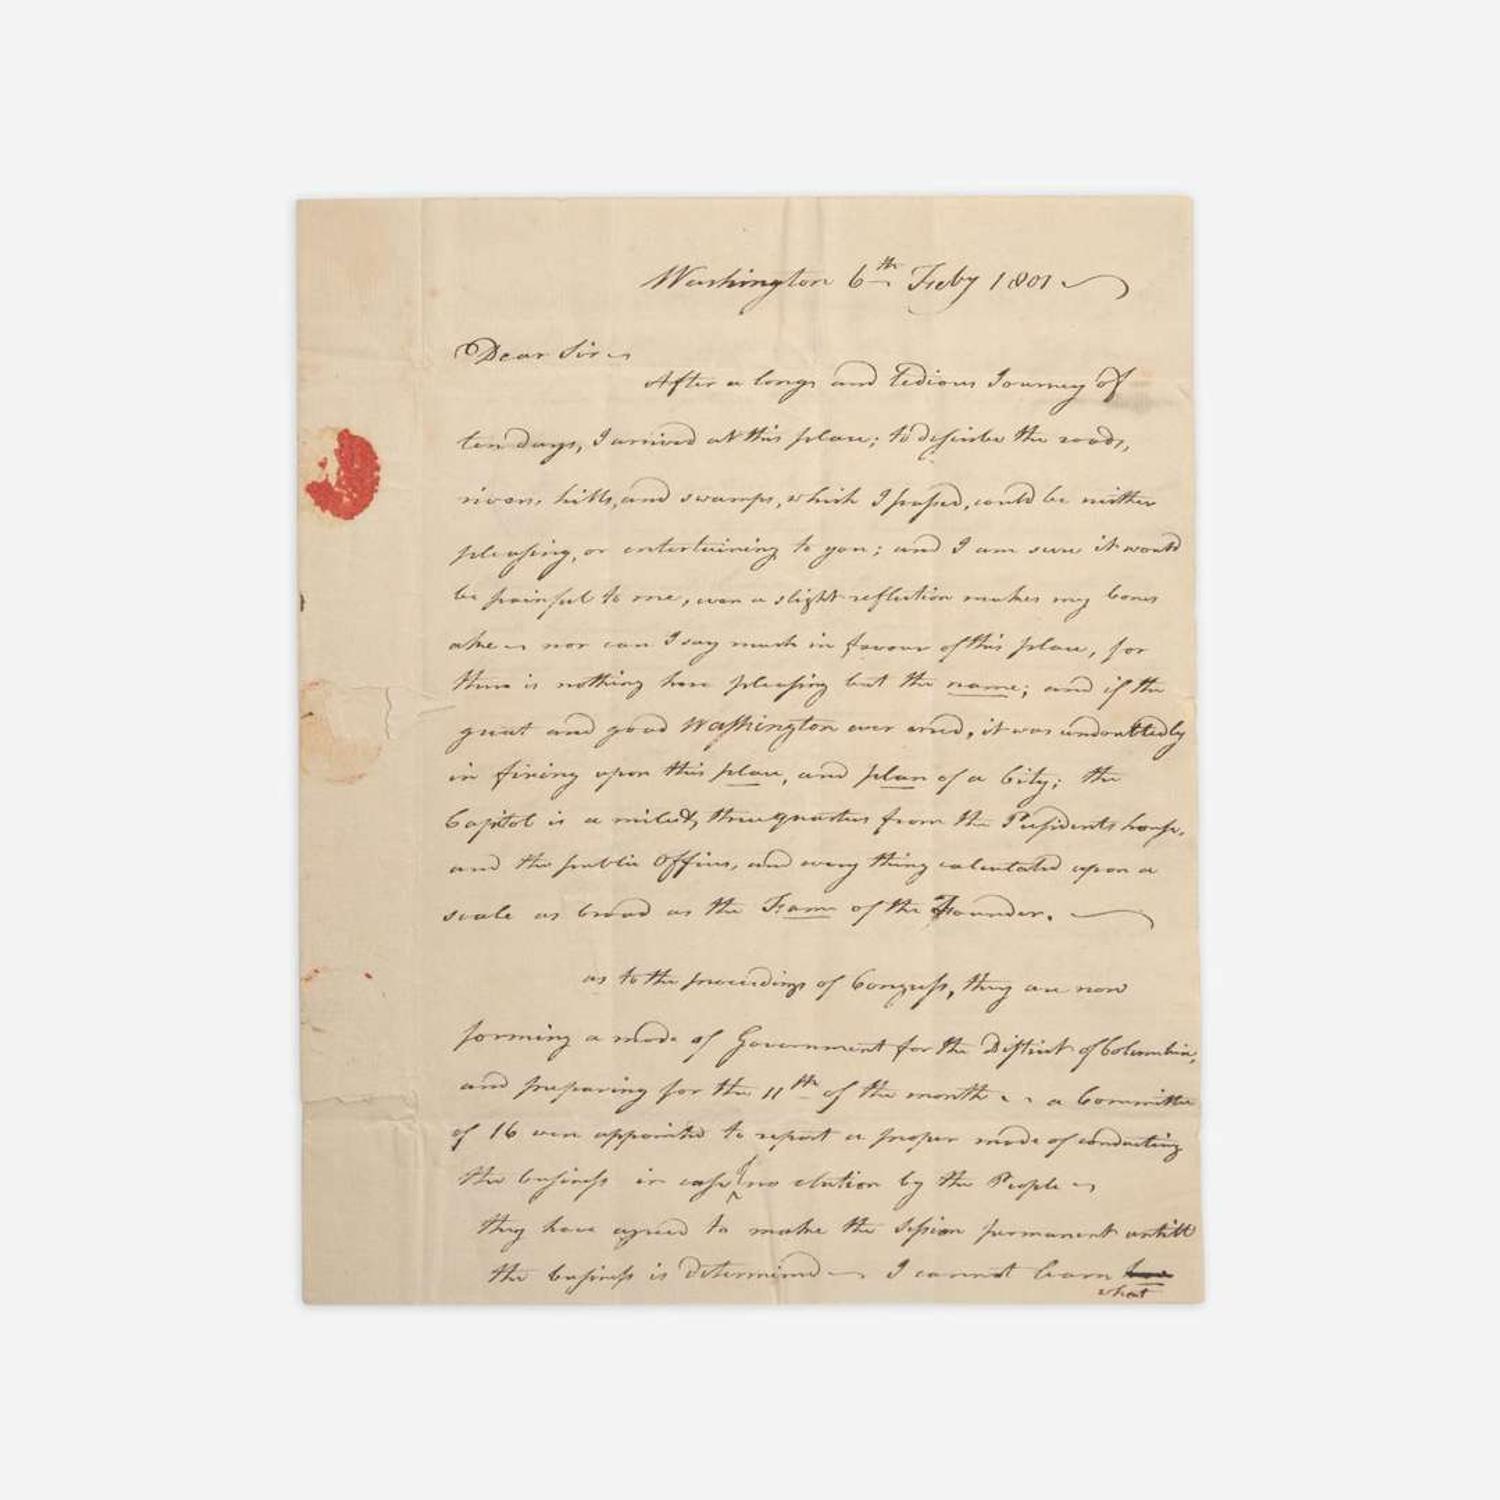 Washington 6th Feby 1801
Dear Sir
After a long and tedious Journey of
ten days, I arrived at this place; to describe the roads,
rivers, hills, and swamps, which I passed, could be neither
pleasing, or entertaining to you; and I am sure it would
be painful to me, even a slight reflection makes my bones
ake – nor can I say much in favour of this place, for
there is nothing here pleasing but the name; and if the
great and good Washington ever erred, it was undoubtedly
in fixing upon this place, and plan of a City; the
Capitol is a mile & three quarters from the Presidents house,
and the public Offices, and every thing calculated upon a
scale as broad as the Fame of the Founder.
as to the proceedings of Congress, they are now
forming a mode of Government for the District of Columbia,
and preparing for the 11th of the month – a Committee
of 16 were appointed to report a proper mode of conducting
the business in case of no election by the People –
they have agreed to make the session permanent untill
the business is determined – I cannot learn
what